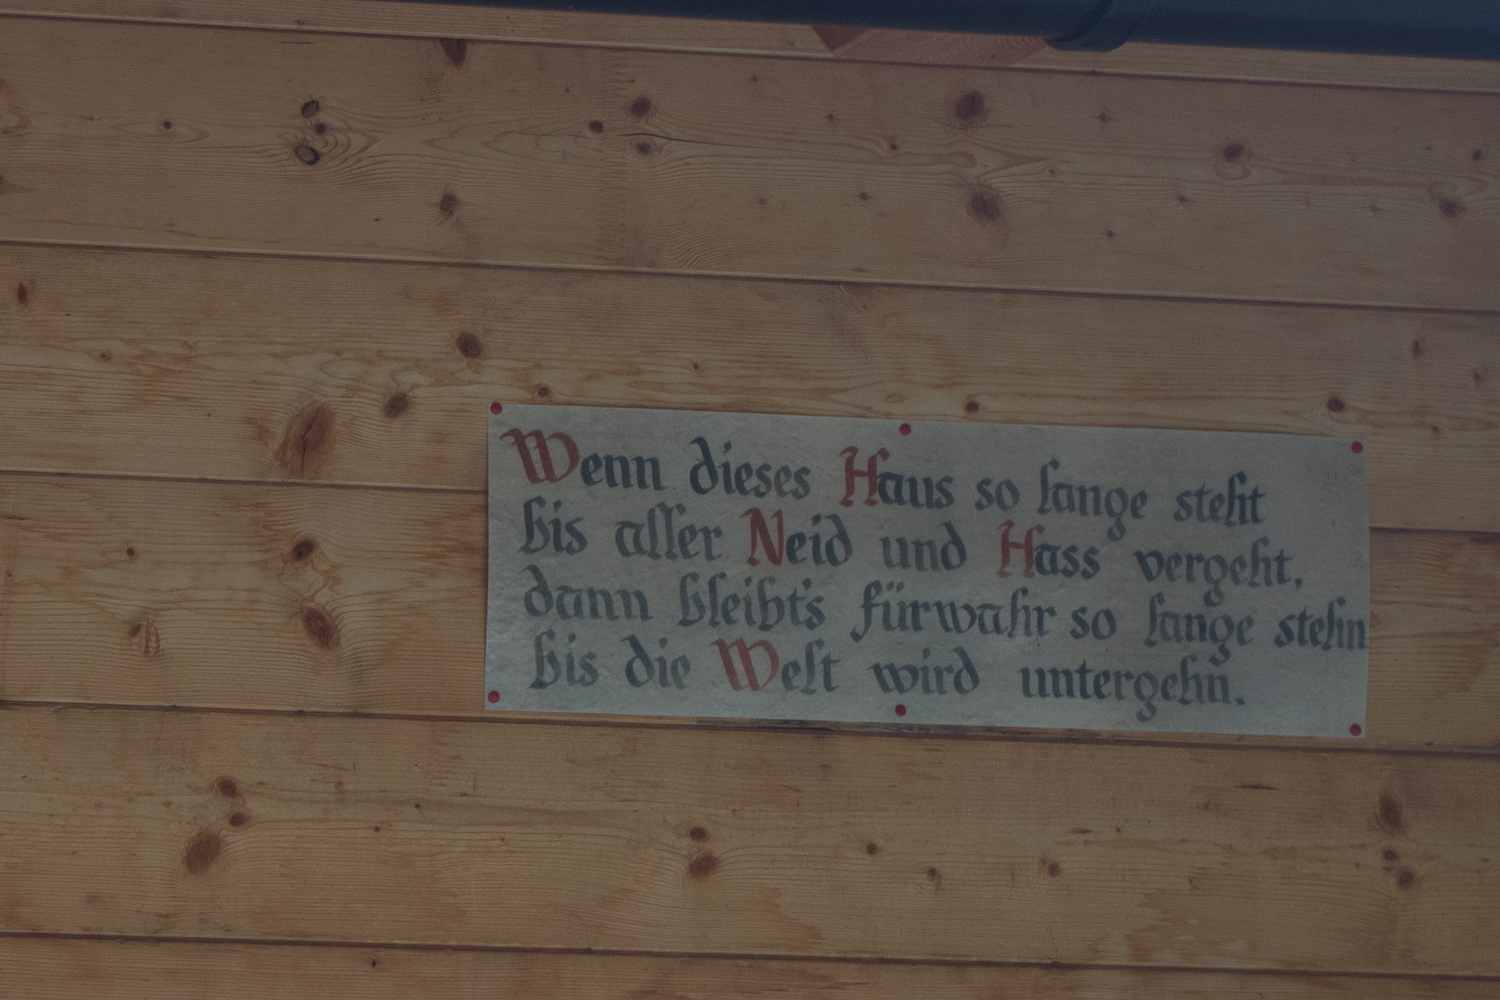 Wenn dieses Haus so lange steht
bis aller Neid und Hass vergeht,
dann bleibt's fürwahr so lange stehn
bis die Welt wird untergehn.